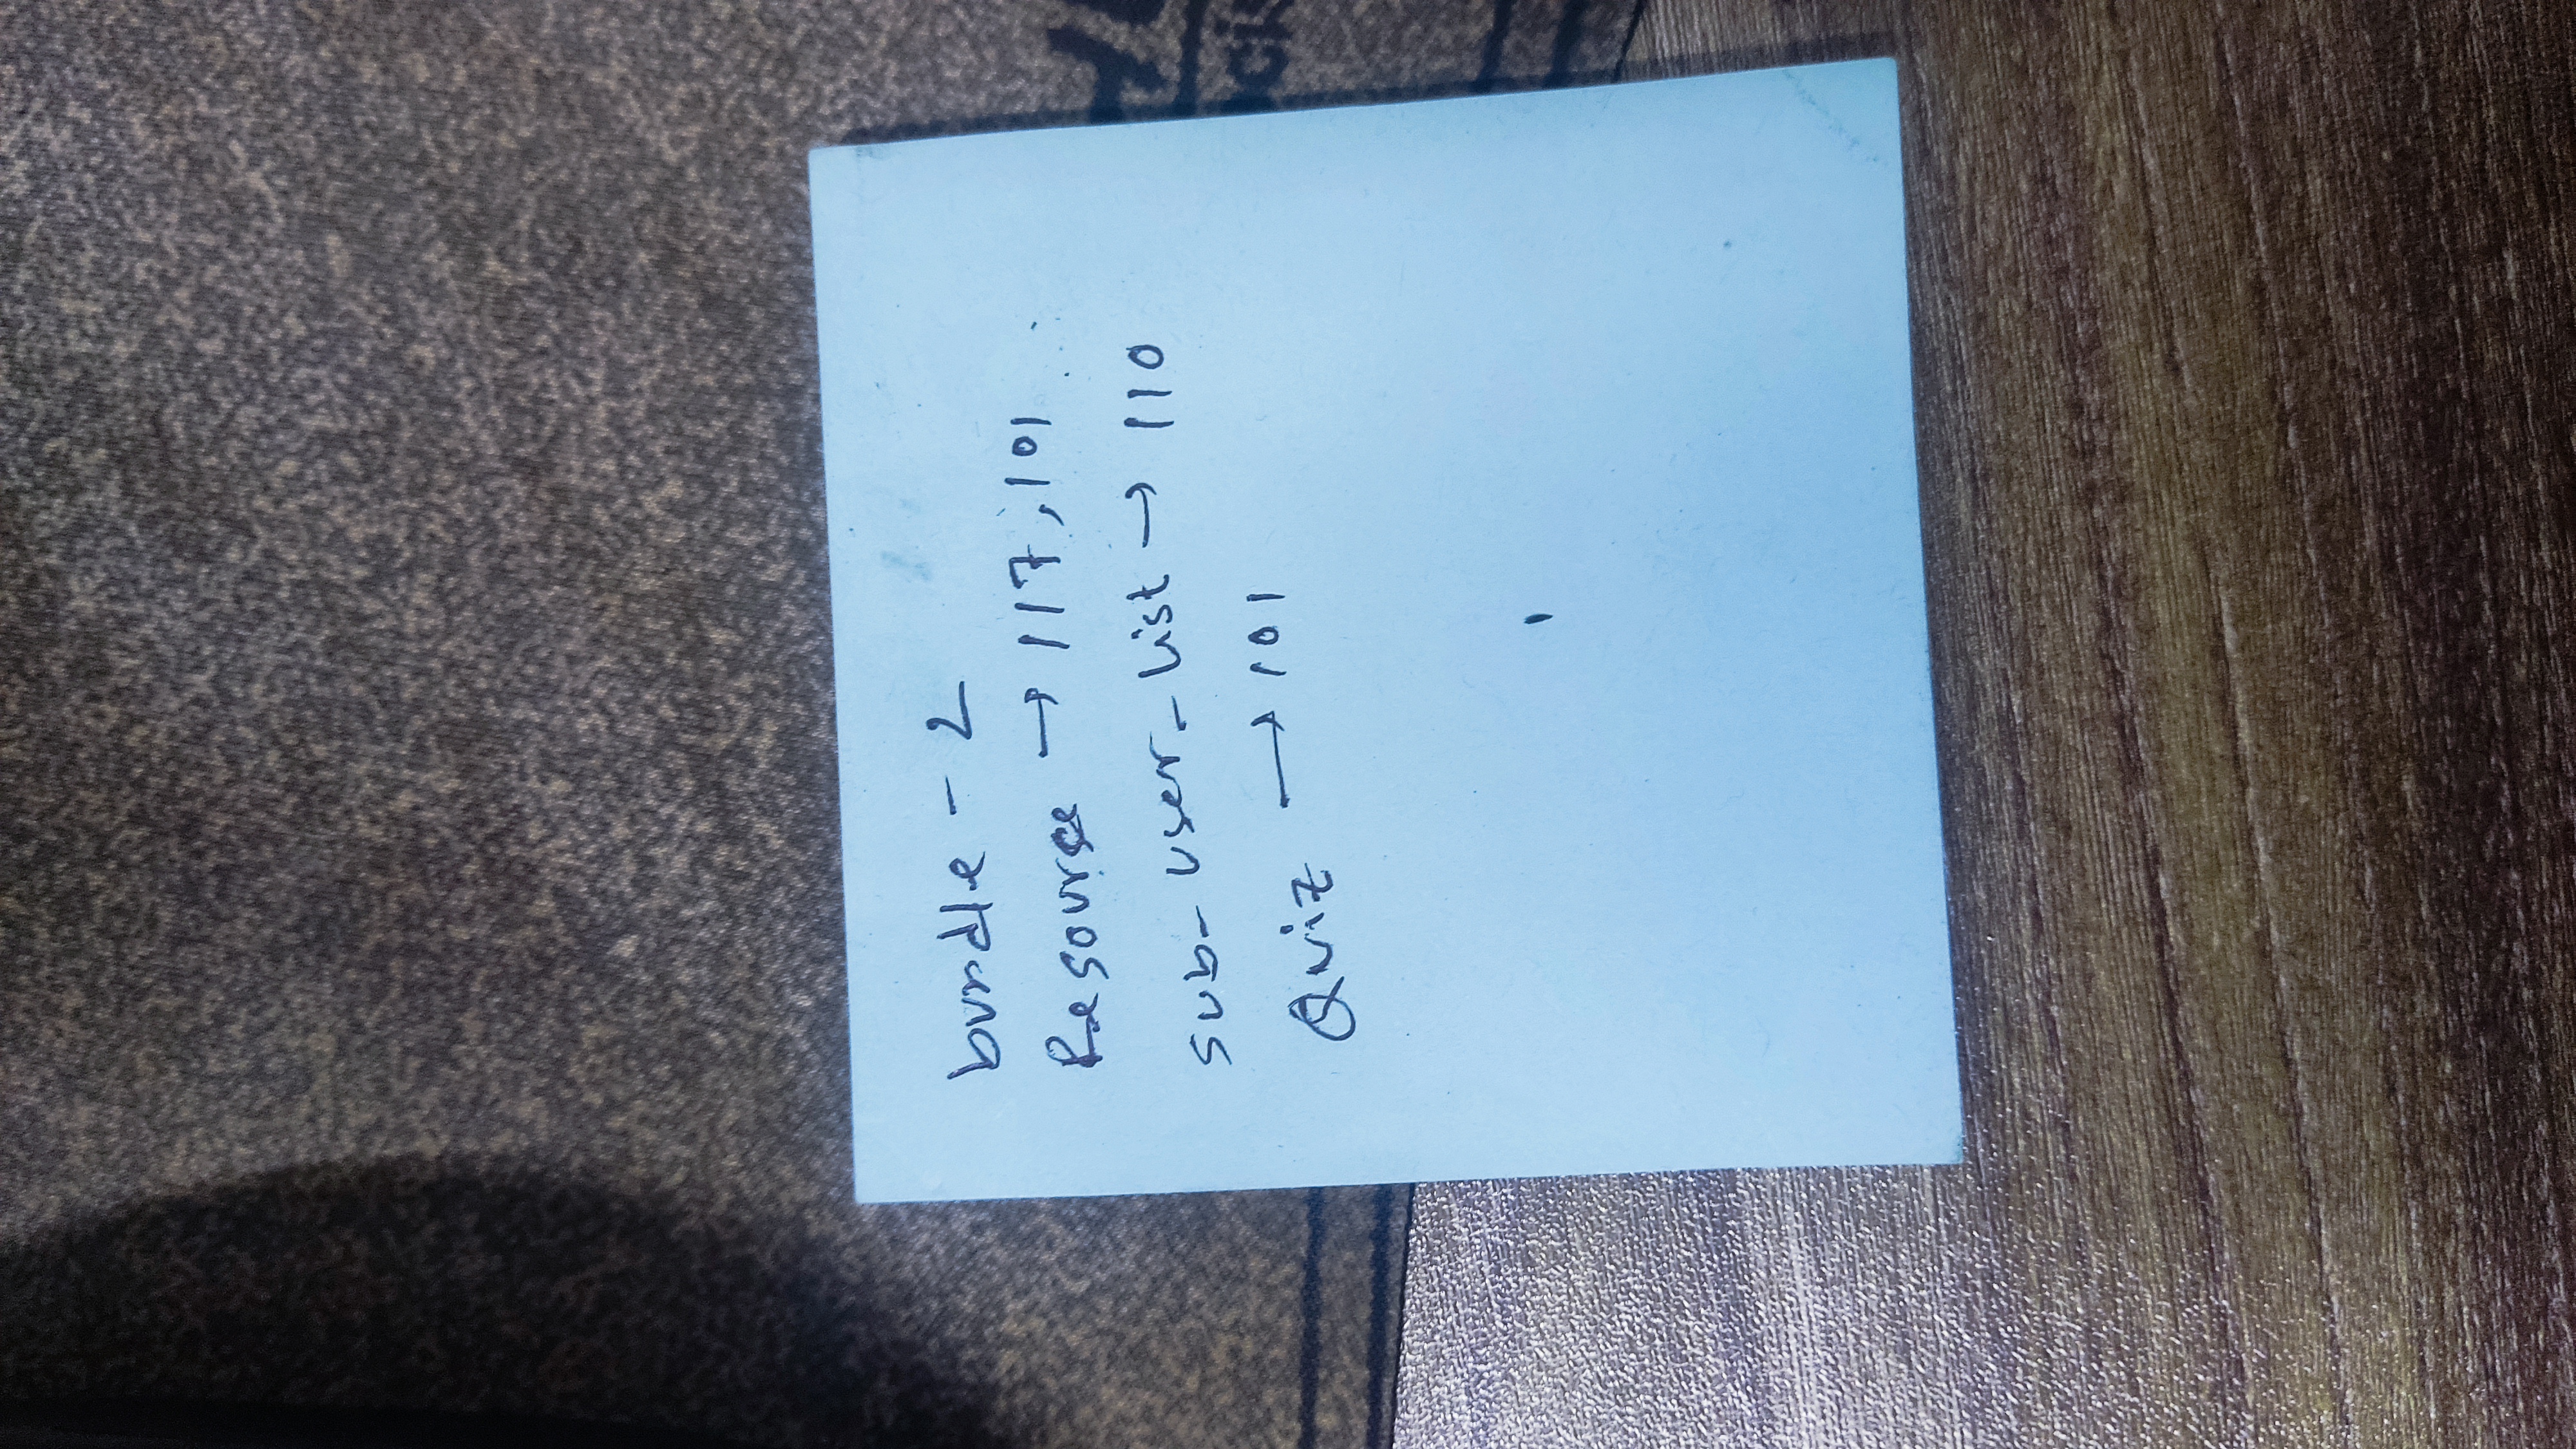 bundle - 2
Resource → 117, 101
sub_user_list → 110
Quiz → 101